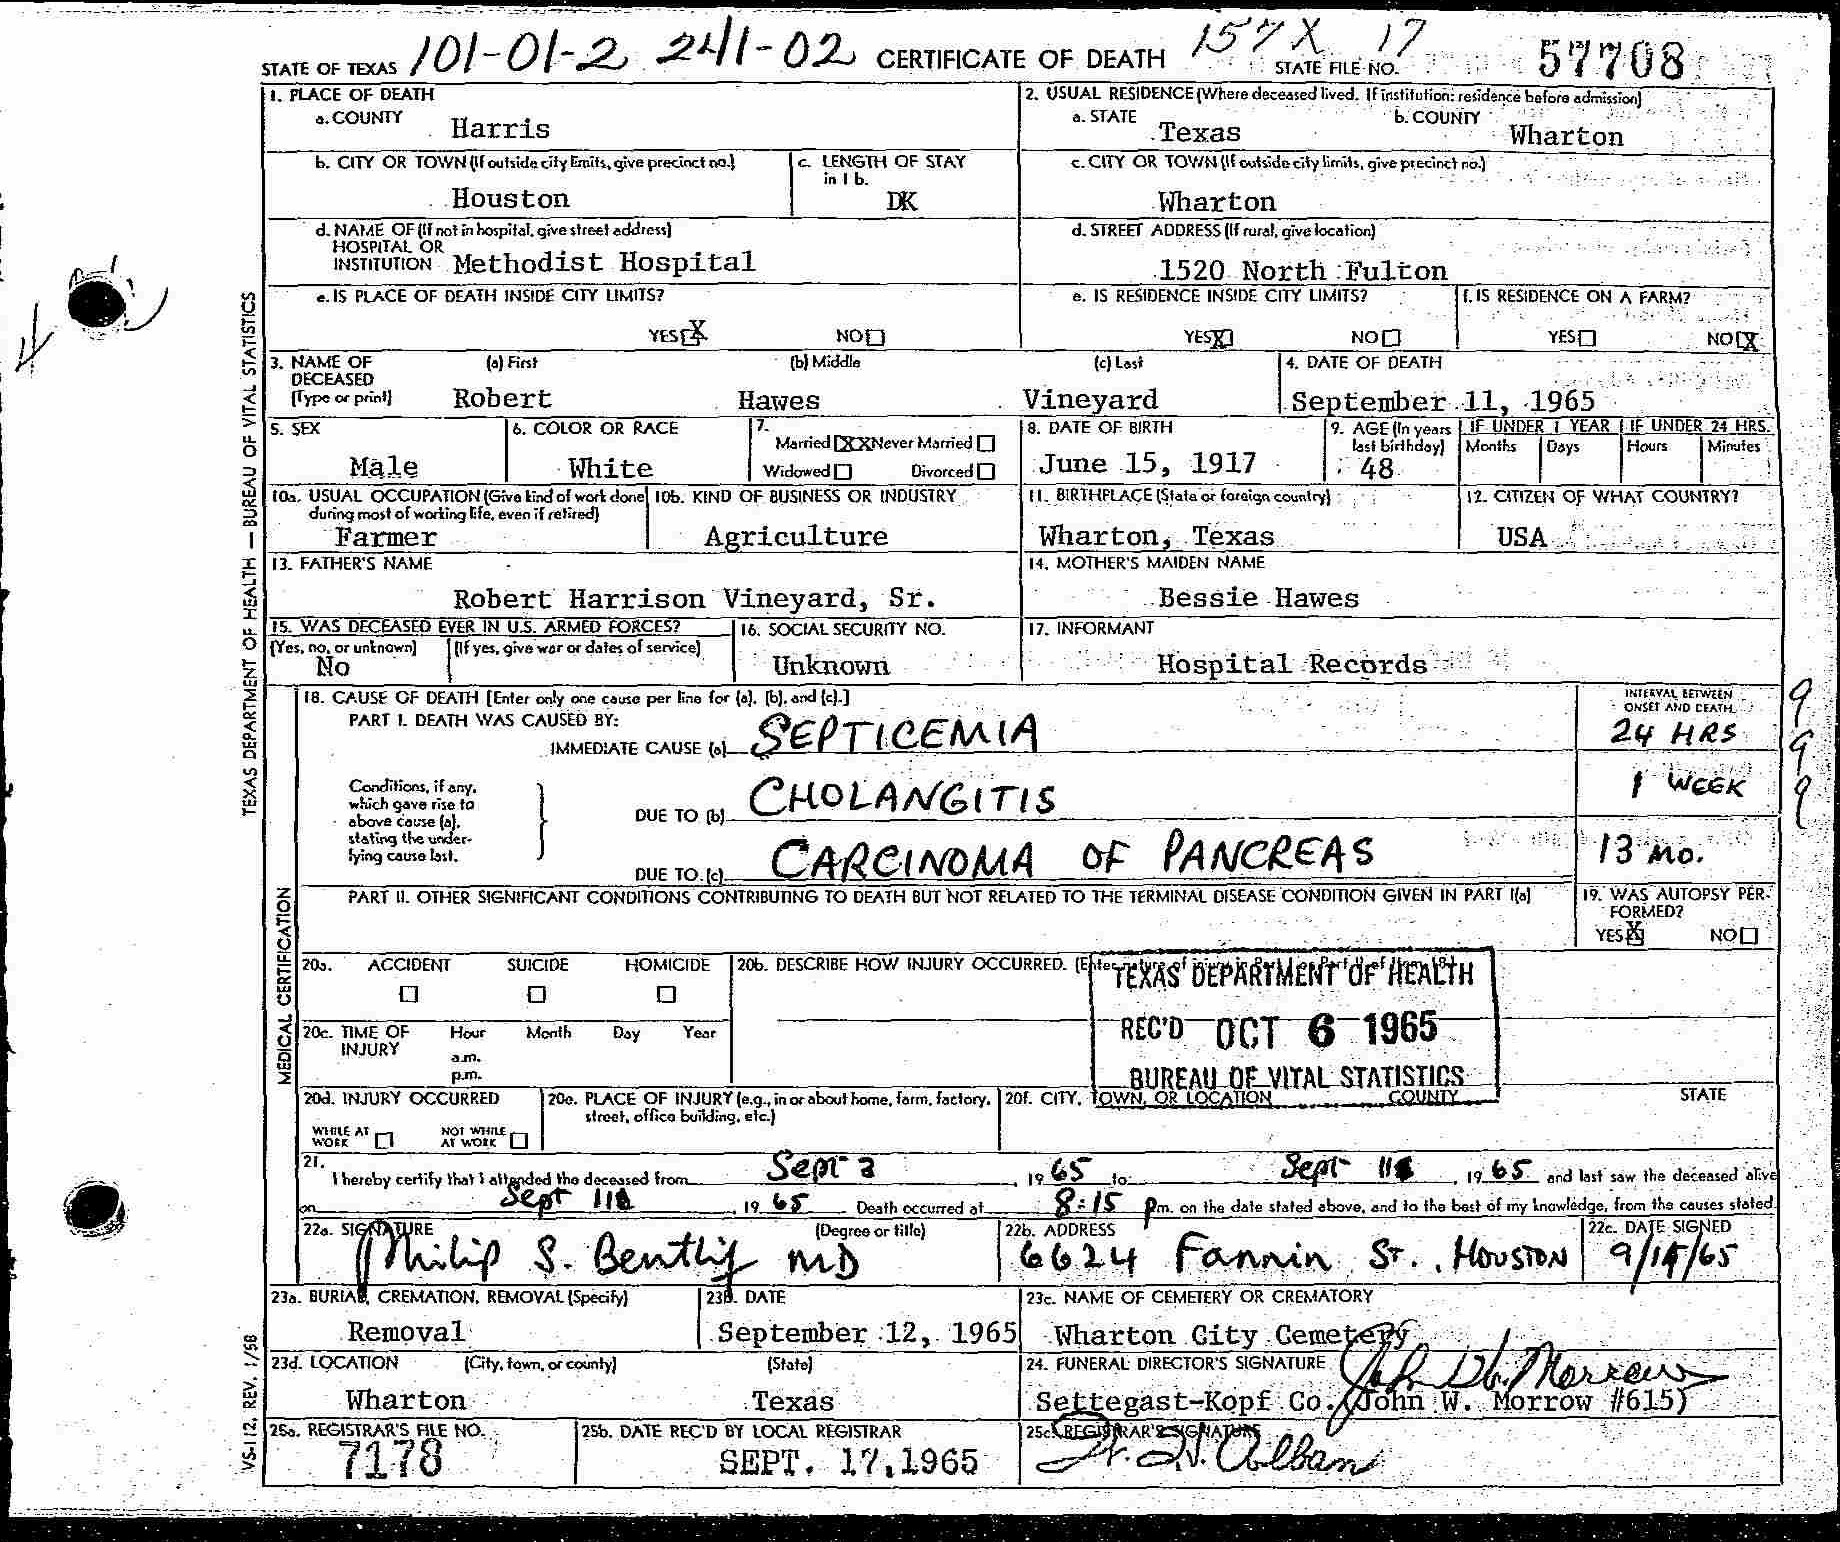 STATE OF TEXAS 101-01-2 241-02 CERTIFICATE OF DEATH 157X 17 STATE FILE NO. 57708
1. PLACE OF DEATH
a. COUNTY Harris
2. USUAL RESIDENCE (Where deceased lived. If institution: residence before admission)
a. STATE Texas b. COUNTY Wharton
b. CITY OR TOWN (If outside city limits, give precinct no.) Houston
c. LENGTH OF STAY in 1 b. DK
c. CITY OR TOWN (If outside city limits, give precinct no.) Wharton
d. NAME OF (If not in hospital, give street address)
HOSPITAL OR
INSTITUTION Methodist Hospital
d. STREET ADDRESS (If rural, give location)
1520 North Fulton
e. IS PLACE OF DEATH INSIDE CITY LIMITS?
YES X NO
e. IS RESIDENCE INSIDE CITY LIMITS?
YES X NO
f. IS RESIDENCE ON A FARM?
YES NO X
3. NAME OF DECEASED (Type or print)
(a) First (b) Middle (c) Last
Robert Hawes Vineyard
4. DATE OF DEATH
September 11, 1965
5. SEX
Male
6. COLOR OR RACE
White
7. Married XX Never Married
Widowed Divorced
8. DATE OF BIRTH
June 15, 1917
9. AGE (In years last birthday)
48
IF UNDER 1 YEAR IF UNDER 24 HRS.
Months Days Hours Minutes
10a. USUAL OCCUPATION (Give kind of work done during most of working life, even if retired)
Farmer
10b. KIND OF BUSINESS OR INDUSTRY
Agriculture
11. BIRTHPLACE (State or foreign country)
Wharton, Texas
12. CITIZEN OF WHAT COUNTRY?
USA
13. FATHER'S NAME
Robert Harrison Vineyard, Sr.
14. MOTHER'S MAIDEN NAME
Bessie Hawes
15. WAS DECEASED EVER IN U.S. ARMED FORCES?
(Yes, no, or unknown) (If yes, give war or dates of service)
No
16. SOCIAL SECURITY NO.
Unknown
17. INFORMANT
Hospital Records
18. CAUSE OF DEATH [Enter only one cause per line for (a), (b), and (c).]
PART I. DEATH WAS CAUSED BY:
INTERVAL BETWEEN ONSET AND DEATH
IMMEDIATE CAUSE (a) SEPTICEMIA 24 HRS 9
Conditions, if any, which gave rise to above cause (a), stating the underlying cause last.
DUE TO (b) CHOLANGITIS 1 WEEK 9
DUE TO (c) CARCINOMA OF PANCREAS 13 MO. 9
PART II. OTHER SIGNIFICANT CONDITIONS CONTRIBUTING TO DEATH BUT NOT RELATED TO THE TERMINAL DISEASE CONDITION GIVEN IN PART I(a)
19. WAS AUTOPSY PERFORMED?
YES X NO
20a. ACCIDENT SUICIDE HOMICIDE
20b. DESCRIBE HOW INJURY OCCURRED. (Enter nature of injury in Part I or Part II of Item 18)
TEXAS DEPARTMENT OF HEALTH
REC'D OCT 6 1965
BUREAU OF VITAL STATISTICS
20c. TIME OF INJURY Hour Month Day Year
a.m.
p.m.
20d. INJURY OCCURRED
WHILE AT WORK NOT WHILE AT WORK
20e. PLACE OF INJURY (e.g., in or about home, farm, factory, street, office building, etc.)
20f. CITY, TOWN, OR LOCATION COUNTY STATE
21.
I hereby certify that I attended the deceased from Sept 3, 1965 to Sept 11, 1965 and last saw the deceased alive
on Sept 11, 1965 Death occurred at 8:15 pm. on the date stated above, and to the best of my knowledge, from the causes stated.
22a. SIGNATURE (Degree or title)
Philip S. Bently MD
22b. ADDRESS
6624 Fannin St., HOUSTON
22c. DATE SIGNED
9/14/65
23a. BURIAL, CREMATION, REMOVAL (Specify)
Removal
23b. DATE
September 12, 1965
23c. NAME OF CEMETERY OR CREMATORY
Wharton City Cemetery
23d. LOCATION (City, town, or county) (State)
Wharton Texas
24. FUNERAL DIRECTOR'S SIGNATURE John W. Morrow
Settegast-Kopf Co. (John W. Morrow #615)
25a. REGISTRAR'S FILE NO.
7178
25b. DATE REC'D BY LOCAL REGISTRAR
SEPT. 17, 1965
25c. REGISTRAR'S SIGNATURE
TEXAS DEPARTMENT OF HEALTH — BUREAU OF VITAL STATISTICS
MEDICAL CERTIFICATION
VS-112, REV. 1/58